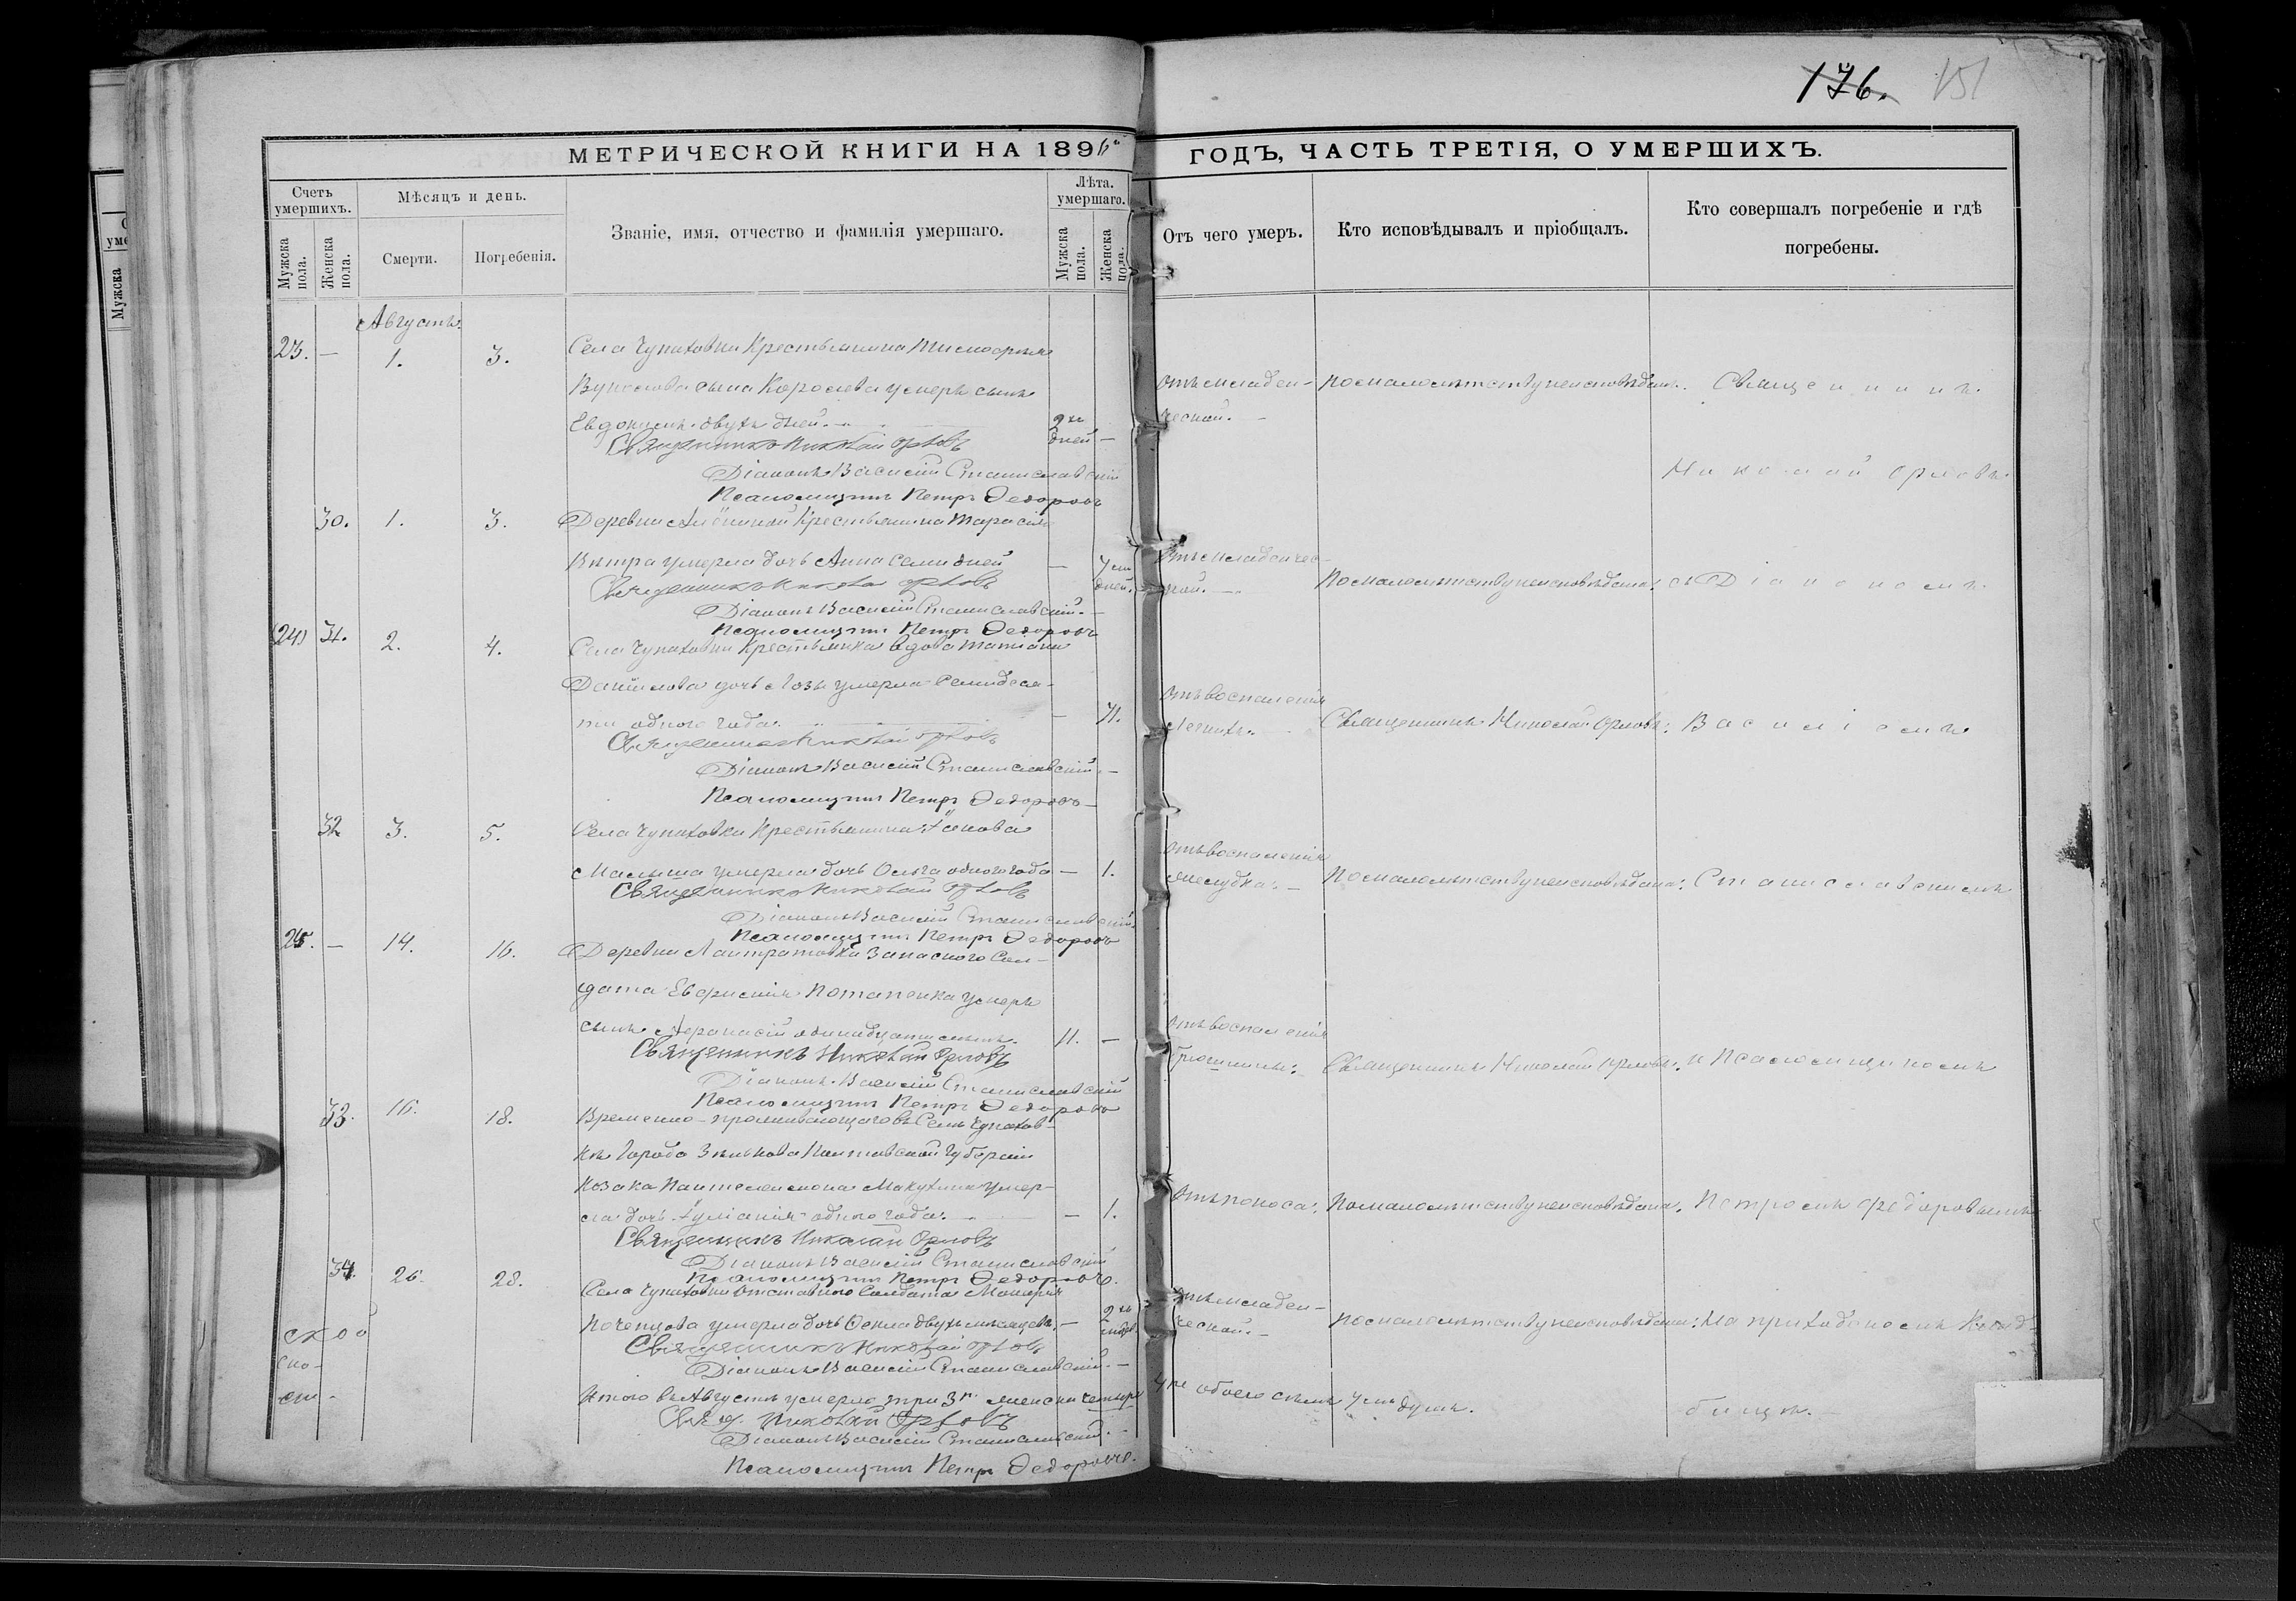 176. 151
МЕТРИЧЕСКОЙ КНИГИ НА 1896й ГОДЪ, ЧАСТЬ ТРЕТІЯ, О УМЕРШИХЪ.
Счетъ умершихъ.
Мѣсяцъ и день.
Званіе, имя, отчество и фамилія умершаго.
Лѣта. умершаго.
Отъ чего умеръ.
Кто исповѣдывалъ и пріобщалъ.
Кто совершалъ погребеніе и гдѣ
погребены.
Мужска пола.
Женска пола.
Смерти.
Погребенія.
Мужска пола.
Женска пола.
Августъ
23. — 1. 3. Села Чупаховки Крестьянина
сына Королева умеръ сынъ отъ младен- по малолѣтству неисповѣданъ. Священникъ
Евдокимъ двухъ дней. — 2хъ дней — ческой. —
Священникъ Николай Орловъ
Діаконъ Василій Станиславскій Николай Орловъ
Псаломщикъ Петръ Федоровъ
30. 1. 3. Деревни Крестьянина Тарасія
умерла дочь Анна семи дней — 7ми дней. Отъ младенчес-
кой. — По малолѣтству неисповѣдана; съ Діакономъ
Священникъ Николай Орловъ
Діаконъ Василій Станиславскій. —
Псаломщикъ Петръ Федоровъ
(24) 31. 2. 4. Села Чупаховки Крестьянка вдова Татіана
Даніилова дочь умерла семидеся-
ти одного года. — 71. Отъ воспаленія
легкихъ. Священникъ Николай Орловъ; Василіемъ
Священникъ Николай Орловъ
Діаконъ Василій Станиславскій. —
Псаломщикъ Петръ Федоровъ
32 3. 5. Села Чупаховки Крестьянина Іакова
Малыша умерла дочь Ольга одного года — 1. Отъ воспаленія
желудка. — По малолѣтству неисповѣдана; Станиславскимъ
Священникъ Николай Орловъ
Діаконъ Василій Станиславскій
Псаломщикъ Петръ Федоровъ
25. — 14. 16. Деревни запаснаго Сол-
дата Потапенка умеръ
сынъ Афанасій одинадцати лѣтъ. 11. — Отъ воспаленія
брюшины; Священникъ Николай Орловъ; и Псаломщикомъ
Священникъ Николай Орловъ
Діаконъ Василій Станиславскій
Псаломщикъ Петръ Федоровъ
33. 16. 18. Временно-проживающаго въ Селѣ Чупахов-
кѣ Города Зѣнькова Полтавской Губерніи
Козака Пантелеимона умер-
ла дочь Іуліанія одного года. — 1. Отъ поноса; По малолѣтству неисповѣдана; Петромъ Федоровымъ
Священникъ Николай Орловъ
Діаконъ Василій Станиславскій
Псаломщикъ Петръ Федоровъ.
34. 26. 28. Села Чупаховки отставного Солдата Макарія
умерла дочь двухъ мѣсяцевъ. — 2хъ Отъ младен-
ческой. — По малолѣтству неисповѣдана; На приходскомъ клад-
бищѣ.
Священникъ Николай Орловъ
Діаконъ Василій Станиславскій. —
Итого въ Августѣ умерло три 3. женска четыре 4ре обоего семь 7мь душъ.
Свящ. Николай Орловъ
Діаконъ Василій Станиславскій. —
Псаломщикъ Петръ Федоровъ.